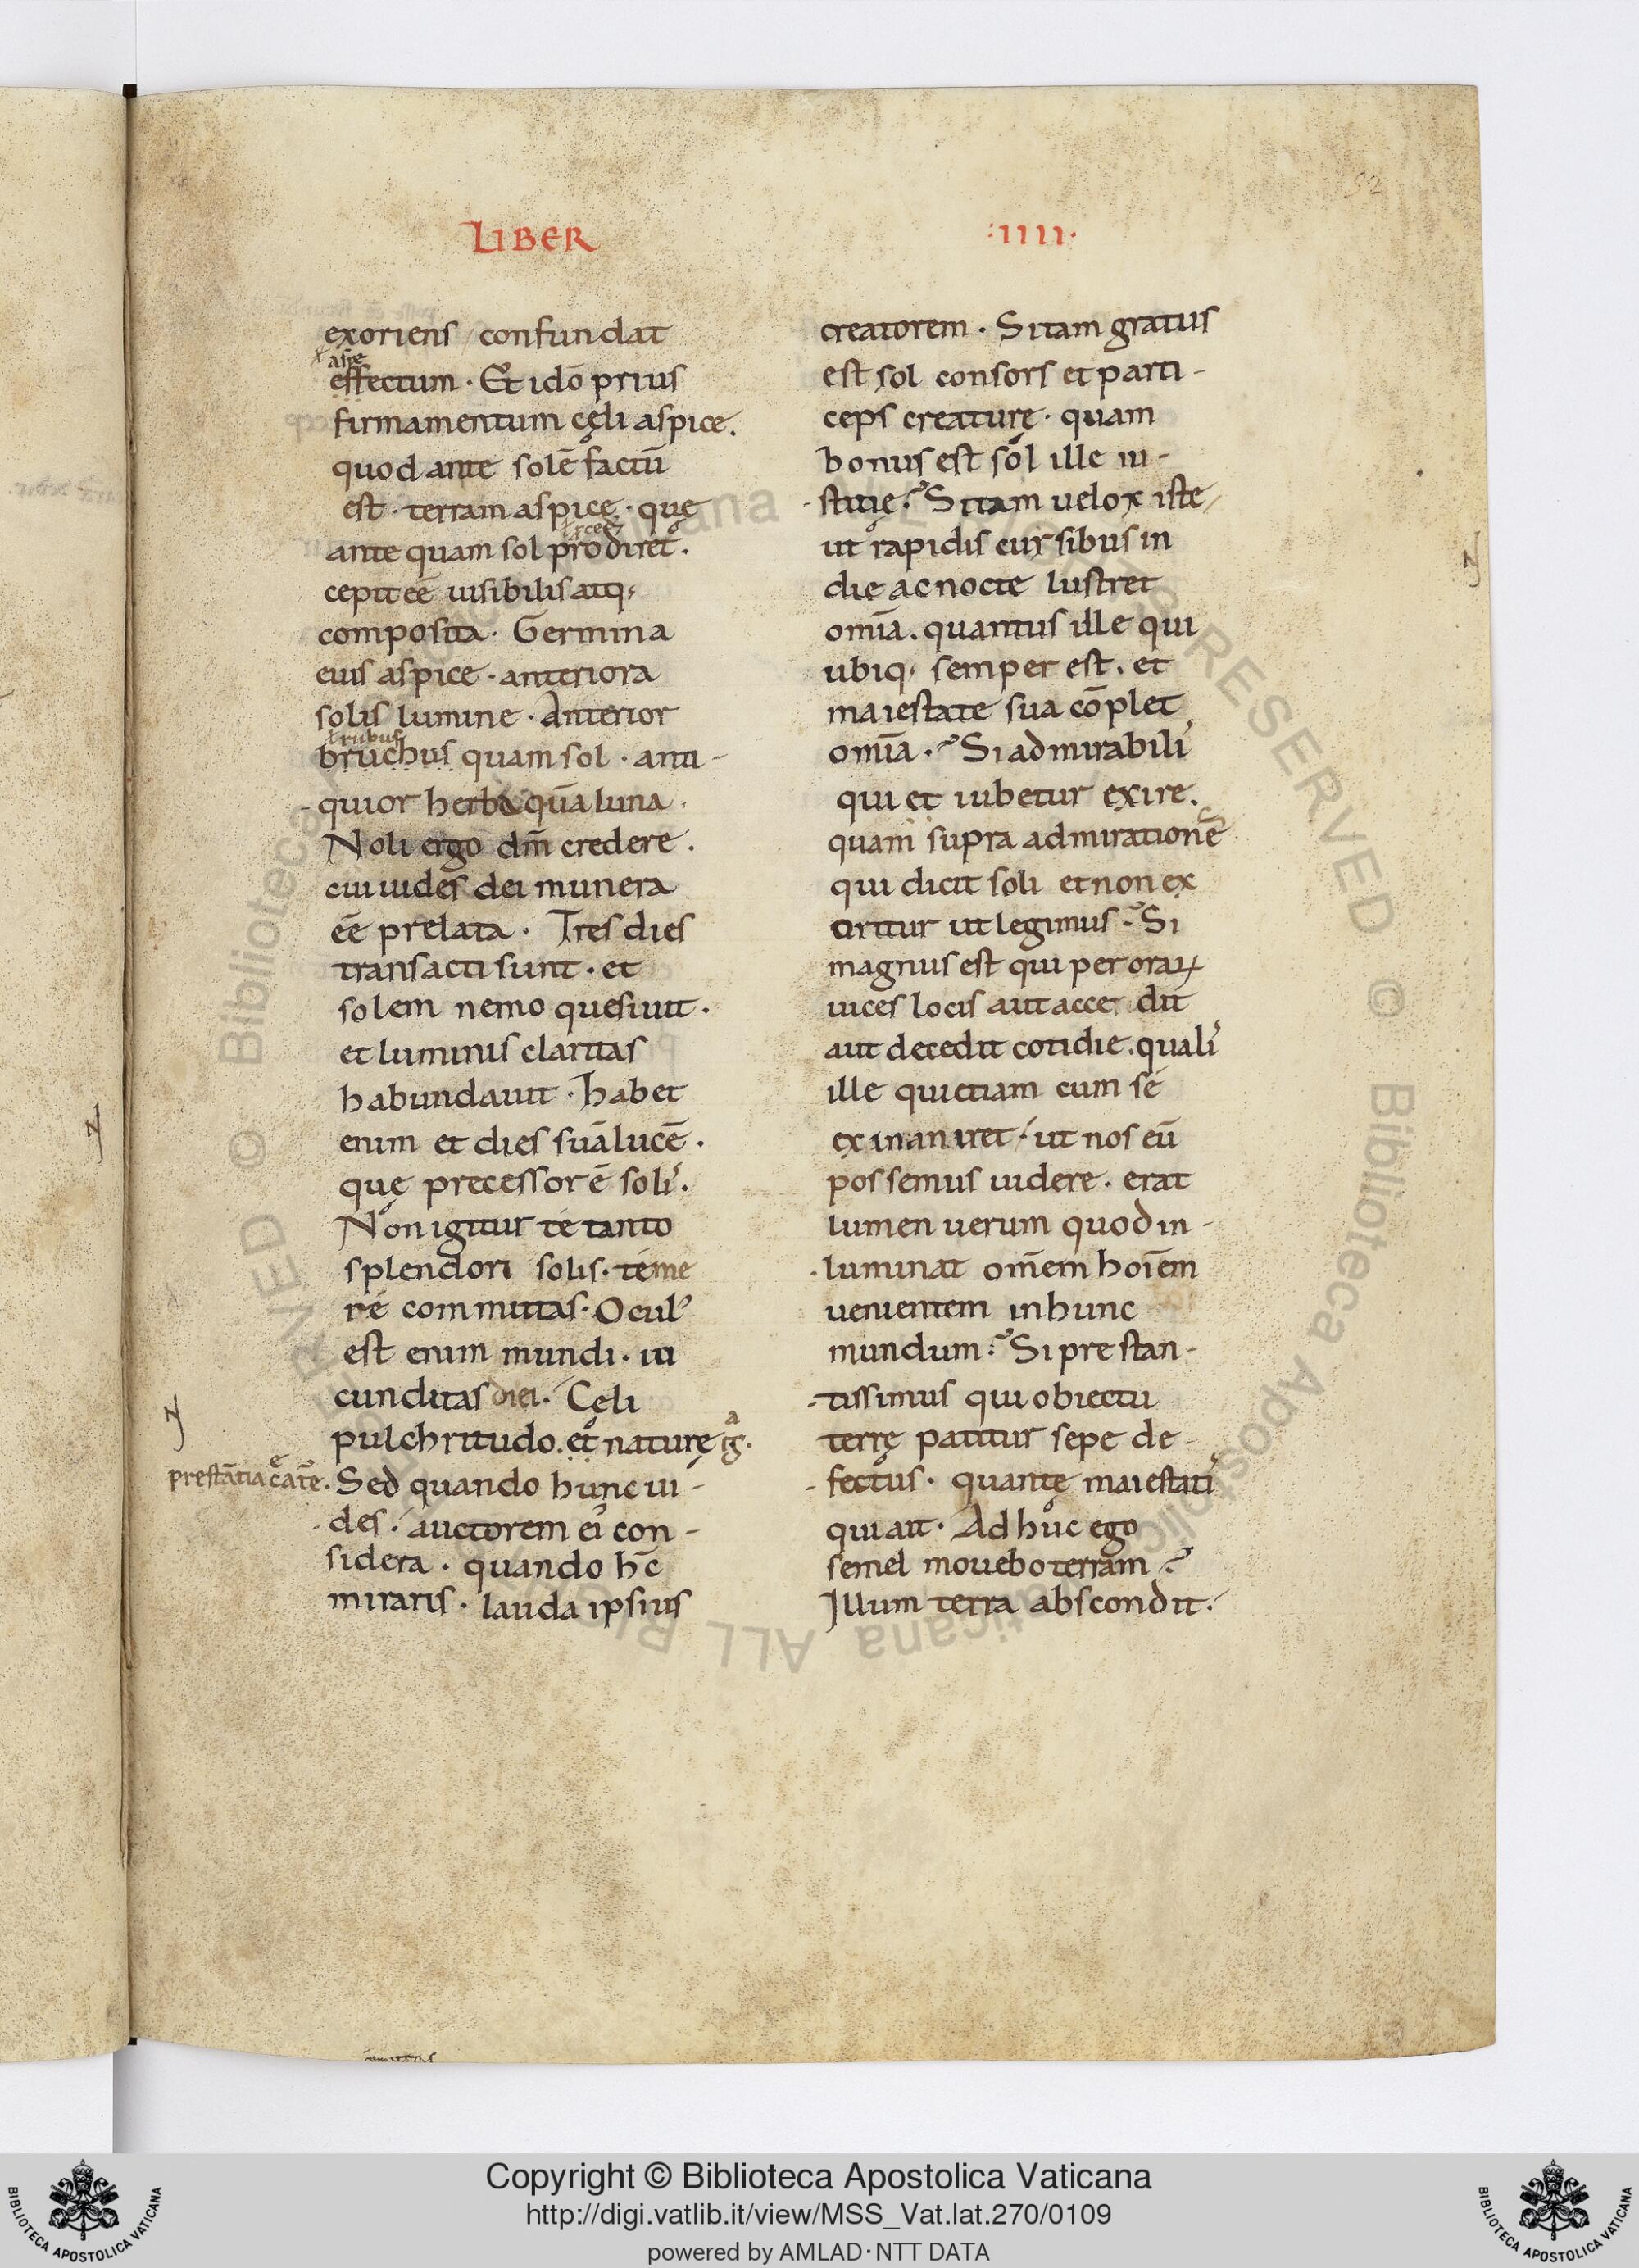 52
LIBER
:IIII·
exoriens confundat
ł aspe
effectum · Et idō prius
firmamentum cęli aspice.
quod ante solē factū
est · terram aspice · quę
ł pceđ
ante quam sol prodiret.
cepit eē uisibilis atq;
composita · Germina
eius aspice · anteriora
solis lumine · Anterior
ł rubus
bruchus quam sol · anti-
-quior herba quā luna ·
Noli ergo dm̄ credere .
cui uides dei munera
eē prelata · Tres dies
transacti sunt · et
solem nemo quesiuit .
et luminis claritas
habundauit · habet
enim et dies suā lucē .
quę precessorē solis .
Non igitur te tanto
splendori solis · teme
re committas · Ocul᾽
est enim mundi · iu
cunditas diei · Cęli
pulchritudo . et naturę g̃ a ·
prestātia c̄atē .
Sed quando hunc ui-
-des · auctorem ei᾽ con-
sidera · quando hc̄
miraris · lauda ipsius
creatorem · Si tam gratus
est sol consors et parti-
ceps creaturę · quam
bonus est sol ille iu-
-stitię? Si tam uelox iste
ut rapidis cursibus in
die ac nocte lustret
omīa . quantus ille qui
ubiq; semper est . et
maiestate sua cōplet
omīa · Si admirabili᾽
qui et iubetur exire .
quam supra admirationē ē
qui dicit soli et non ex
oritur ut legimus? Si
magnus est qui per oraꝝ
uices locis aut acce dit
aut decedit cotidie . quali᾽
ille qui etiam cum se
exinaniret · ut nos eū
possemus uidere . erat
lumen uerum quod in-
-luminat om̄em hoīem
uenientem in hunc
mundum? Si prestan-
-tissimus qui obiectu
terrę patitur sepe de-
-fectus · quantę maiestati᾽
qui ait · Ad huc ego
semel mouebo terram?
Illum terra abscondit ·
Copyright © Biblioteca Apostolica Vaticana
http://digi.vatlib.it/view/MSS_Vat.lat.270/0109
powered by AMLAD·NTT DATA
BIBLIOTECA APOSTOLICA VATICANA
BIBLIOTECA APOSTOLICA VATICANA